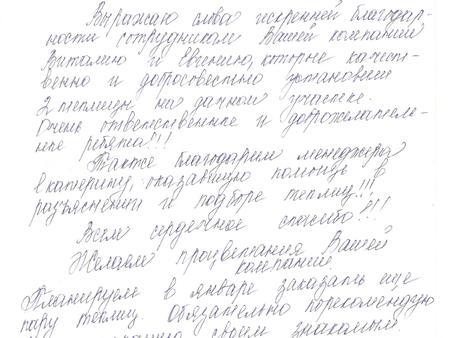 Выражаю слова искренней благодар-
ности сотрудникам Вашей компании
Виталию и Евгению, которые качест-
венно и добросовестно установили
2 теплицы на дачном участке.
Очень ответственные и доброжелатель-
ные ребята!!!
Также благодарим менеджера
Екатерину, оказавшую помощь в
разъяснении и подборе теплиц!!!
Всем сердечное спасибо!!!
Желаем процветания Вашей
компании.
Планируем в январе заказать еще
пару теплиц. Обязательно порекомендую
своим знакомым